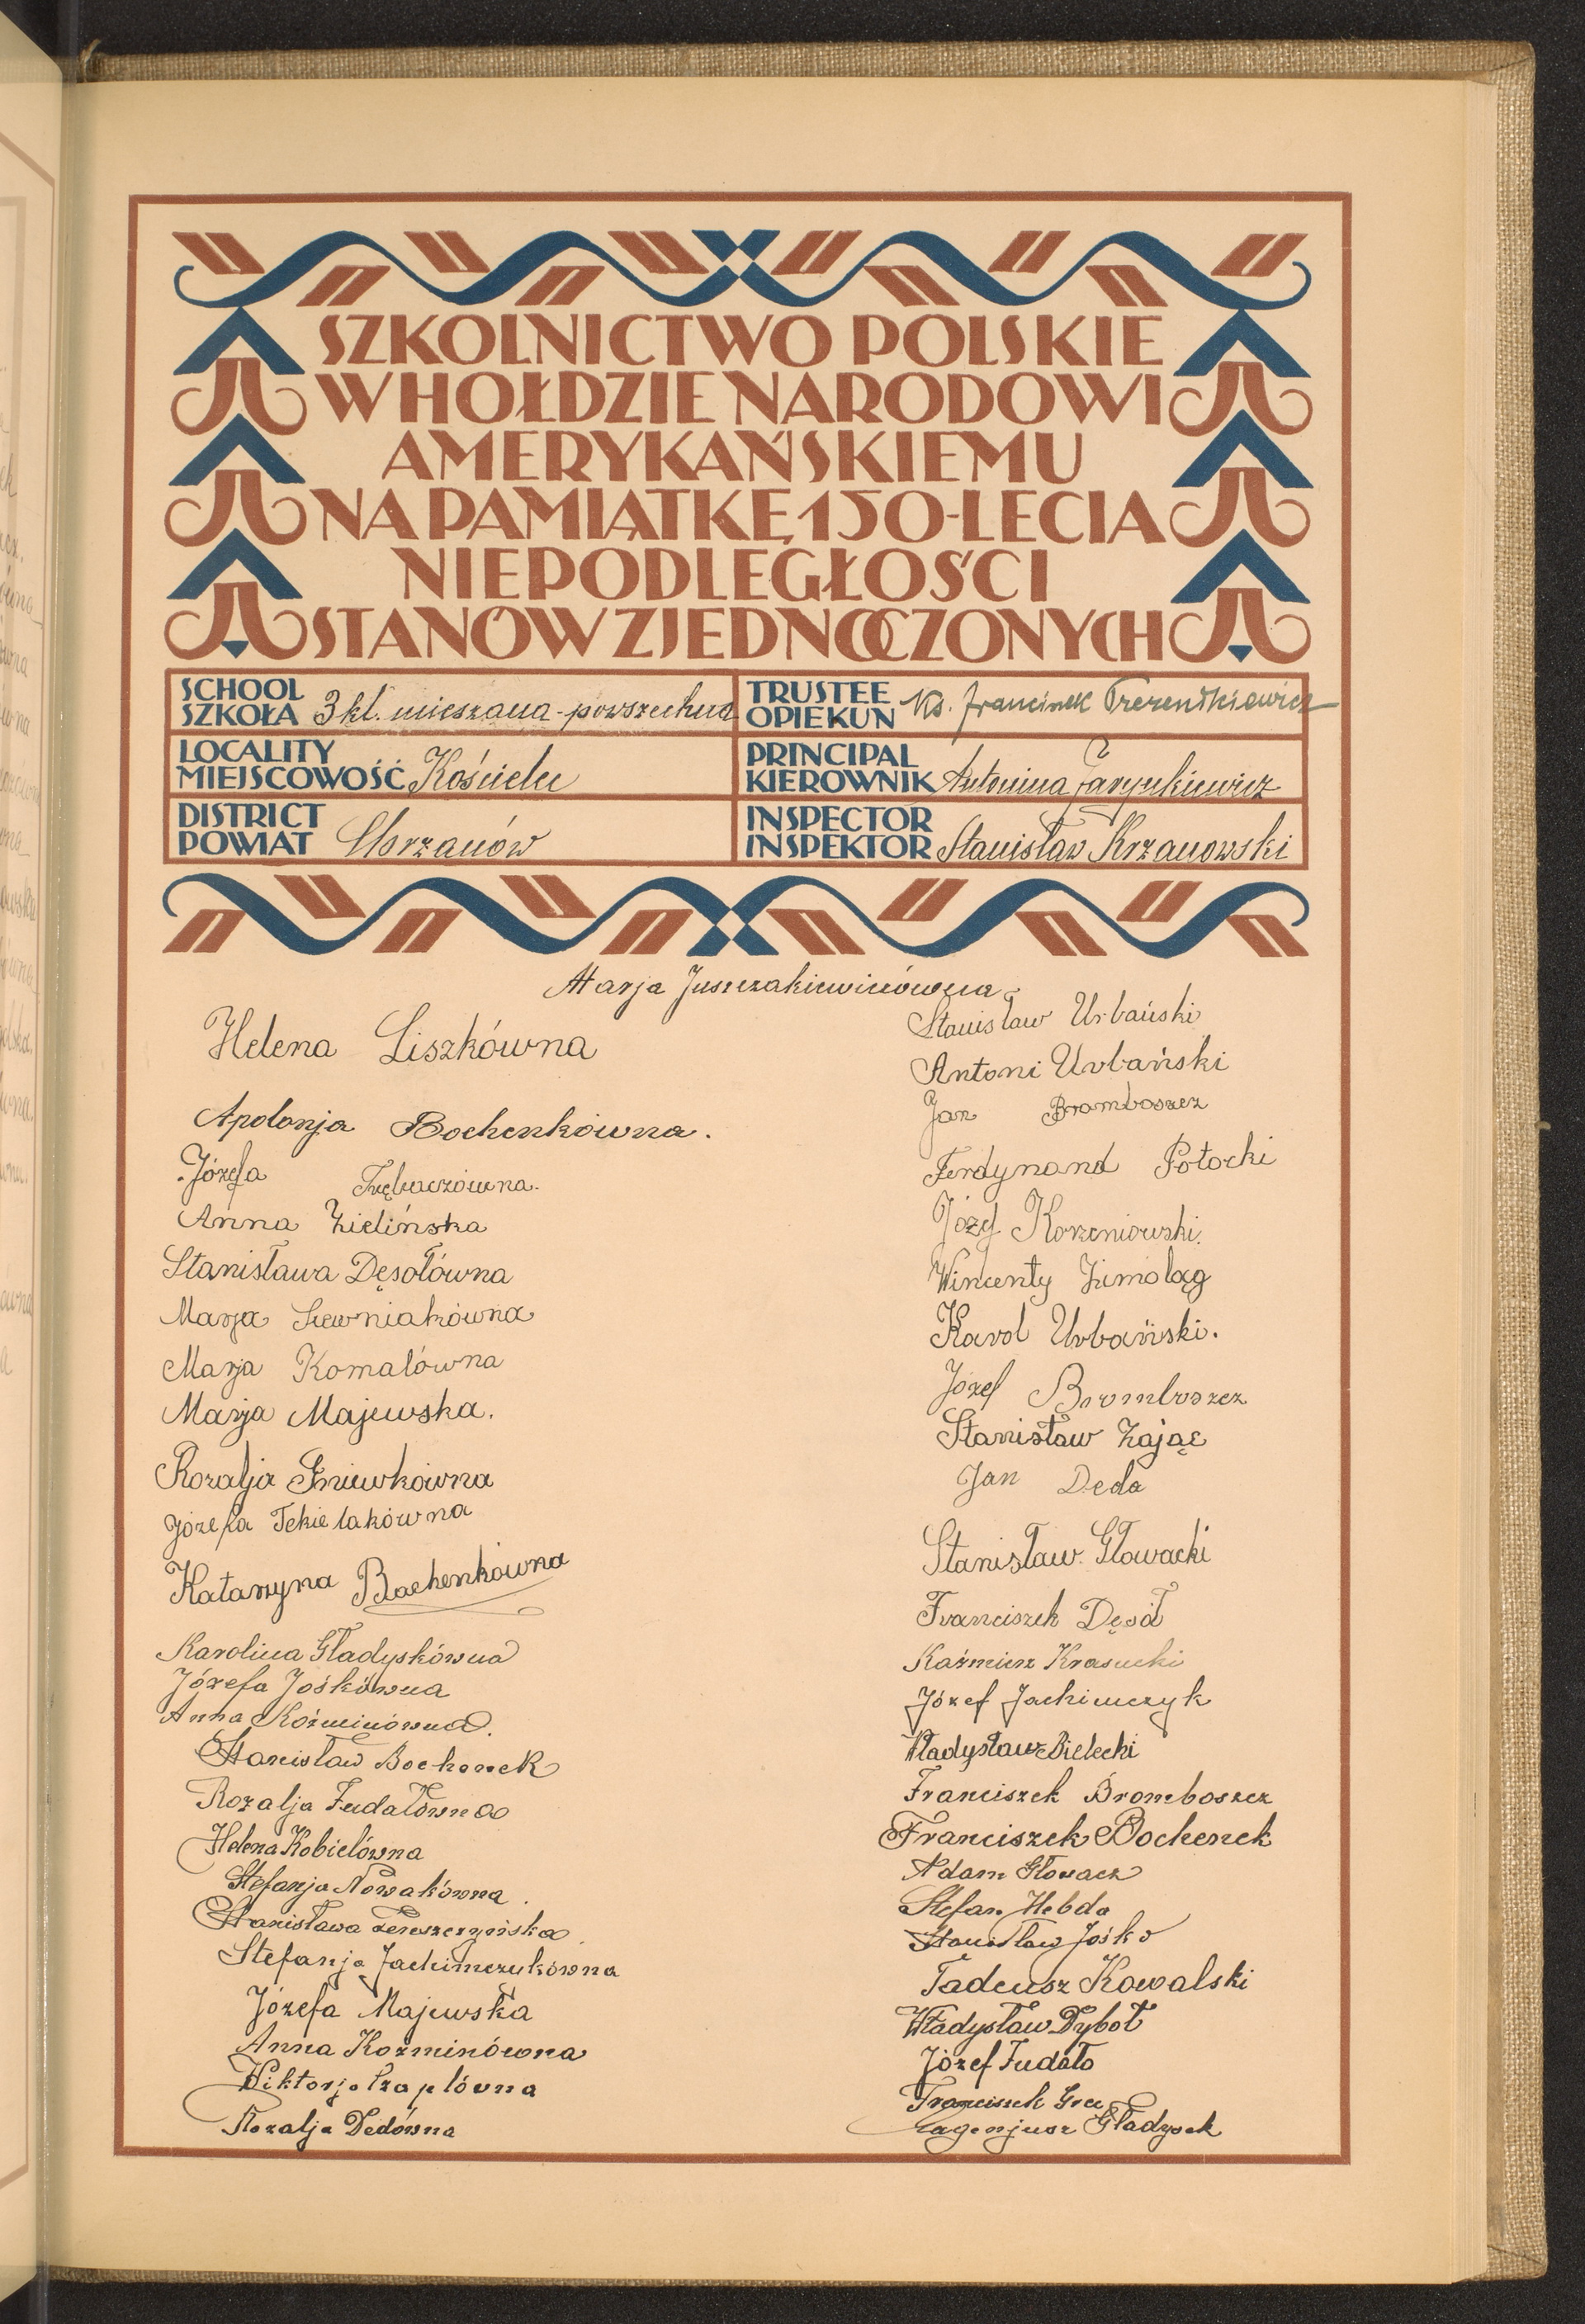 SZKOLNICTWO POLSKIE
W HOŁDZIE NARODOWI
AMERYKAŃSKIEMU
NA PAMIĄTKĘ 150-LECIA
NIEPODLEGŁOŚCI
STANÓW ZJEDNOCZONYCH
SCHOOL
SZKOŁA 3 kl. mieszana-powszechna
TRUSTEE
OPIEKUN Ks. Franciszek
LOCALITY
MIEJSCOWOŚĆ Kościelec
PRINCIPAL
KIEROWNIK Antonina
DISTRICT
POWIAT Chrzanów
INSPECTOR
INSPEKTOR Stanisław Krzanowski
Marja Juszczakiewiczówna
Helena Liszkówna
Apolonja Bochenkówna.
Józefa Trębaczówna.
Anna Zielińska
Stanisława Dęsołówna
Marja
Marja Komalówna
Marja Majewska.
Rozalja Gniewkówna
Józefa Tekielakówna
Katarzyna Bochenkówna
Karolina Gładyskówna
Józefa Jośkówna
Anna Koźminówna.
Stanisław Bochenek
Rozalja Fudałówna
Helena Kobielówna
Stefanja Nowakówna.
Stanisława
Stefanja Jachimczykówna
Józefa Majewska
Anna Koźminówna
Wiktorja Czaplówna
Rozalja Dedówna
Stanisław Urbański
Antoni Urbański
Jan Bromboszcz
Ferdynand Potocki
Józef Korzeniowski.
Wincenty Zimoląg
Karol Urbański.
Józef Bromboszcz
Stanisław Zając
Jan Deda
Stanisław Głowacki
Franciszek Dęsoł
Kaźmierz Krasucki
Józef Jachimczyk
Władysław Bielecki
Franciszek Bromboszcz
Franciszek Bochenek
Adam Głowacz
Stefan Hebda
Stanisław Jośko
Tadeusz Kowalski
Władysław Dyboł
Józef Fudało
Franciszek
Eugenjusz Gładysek